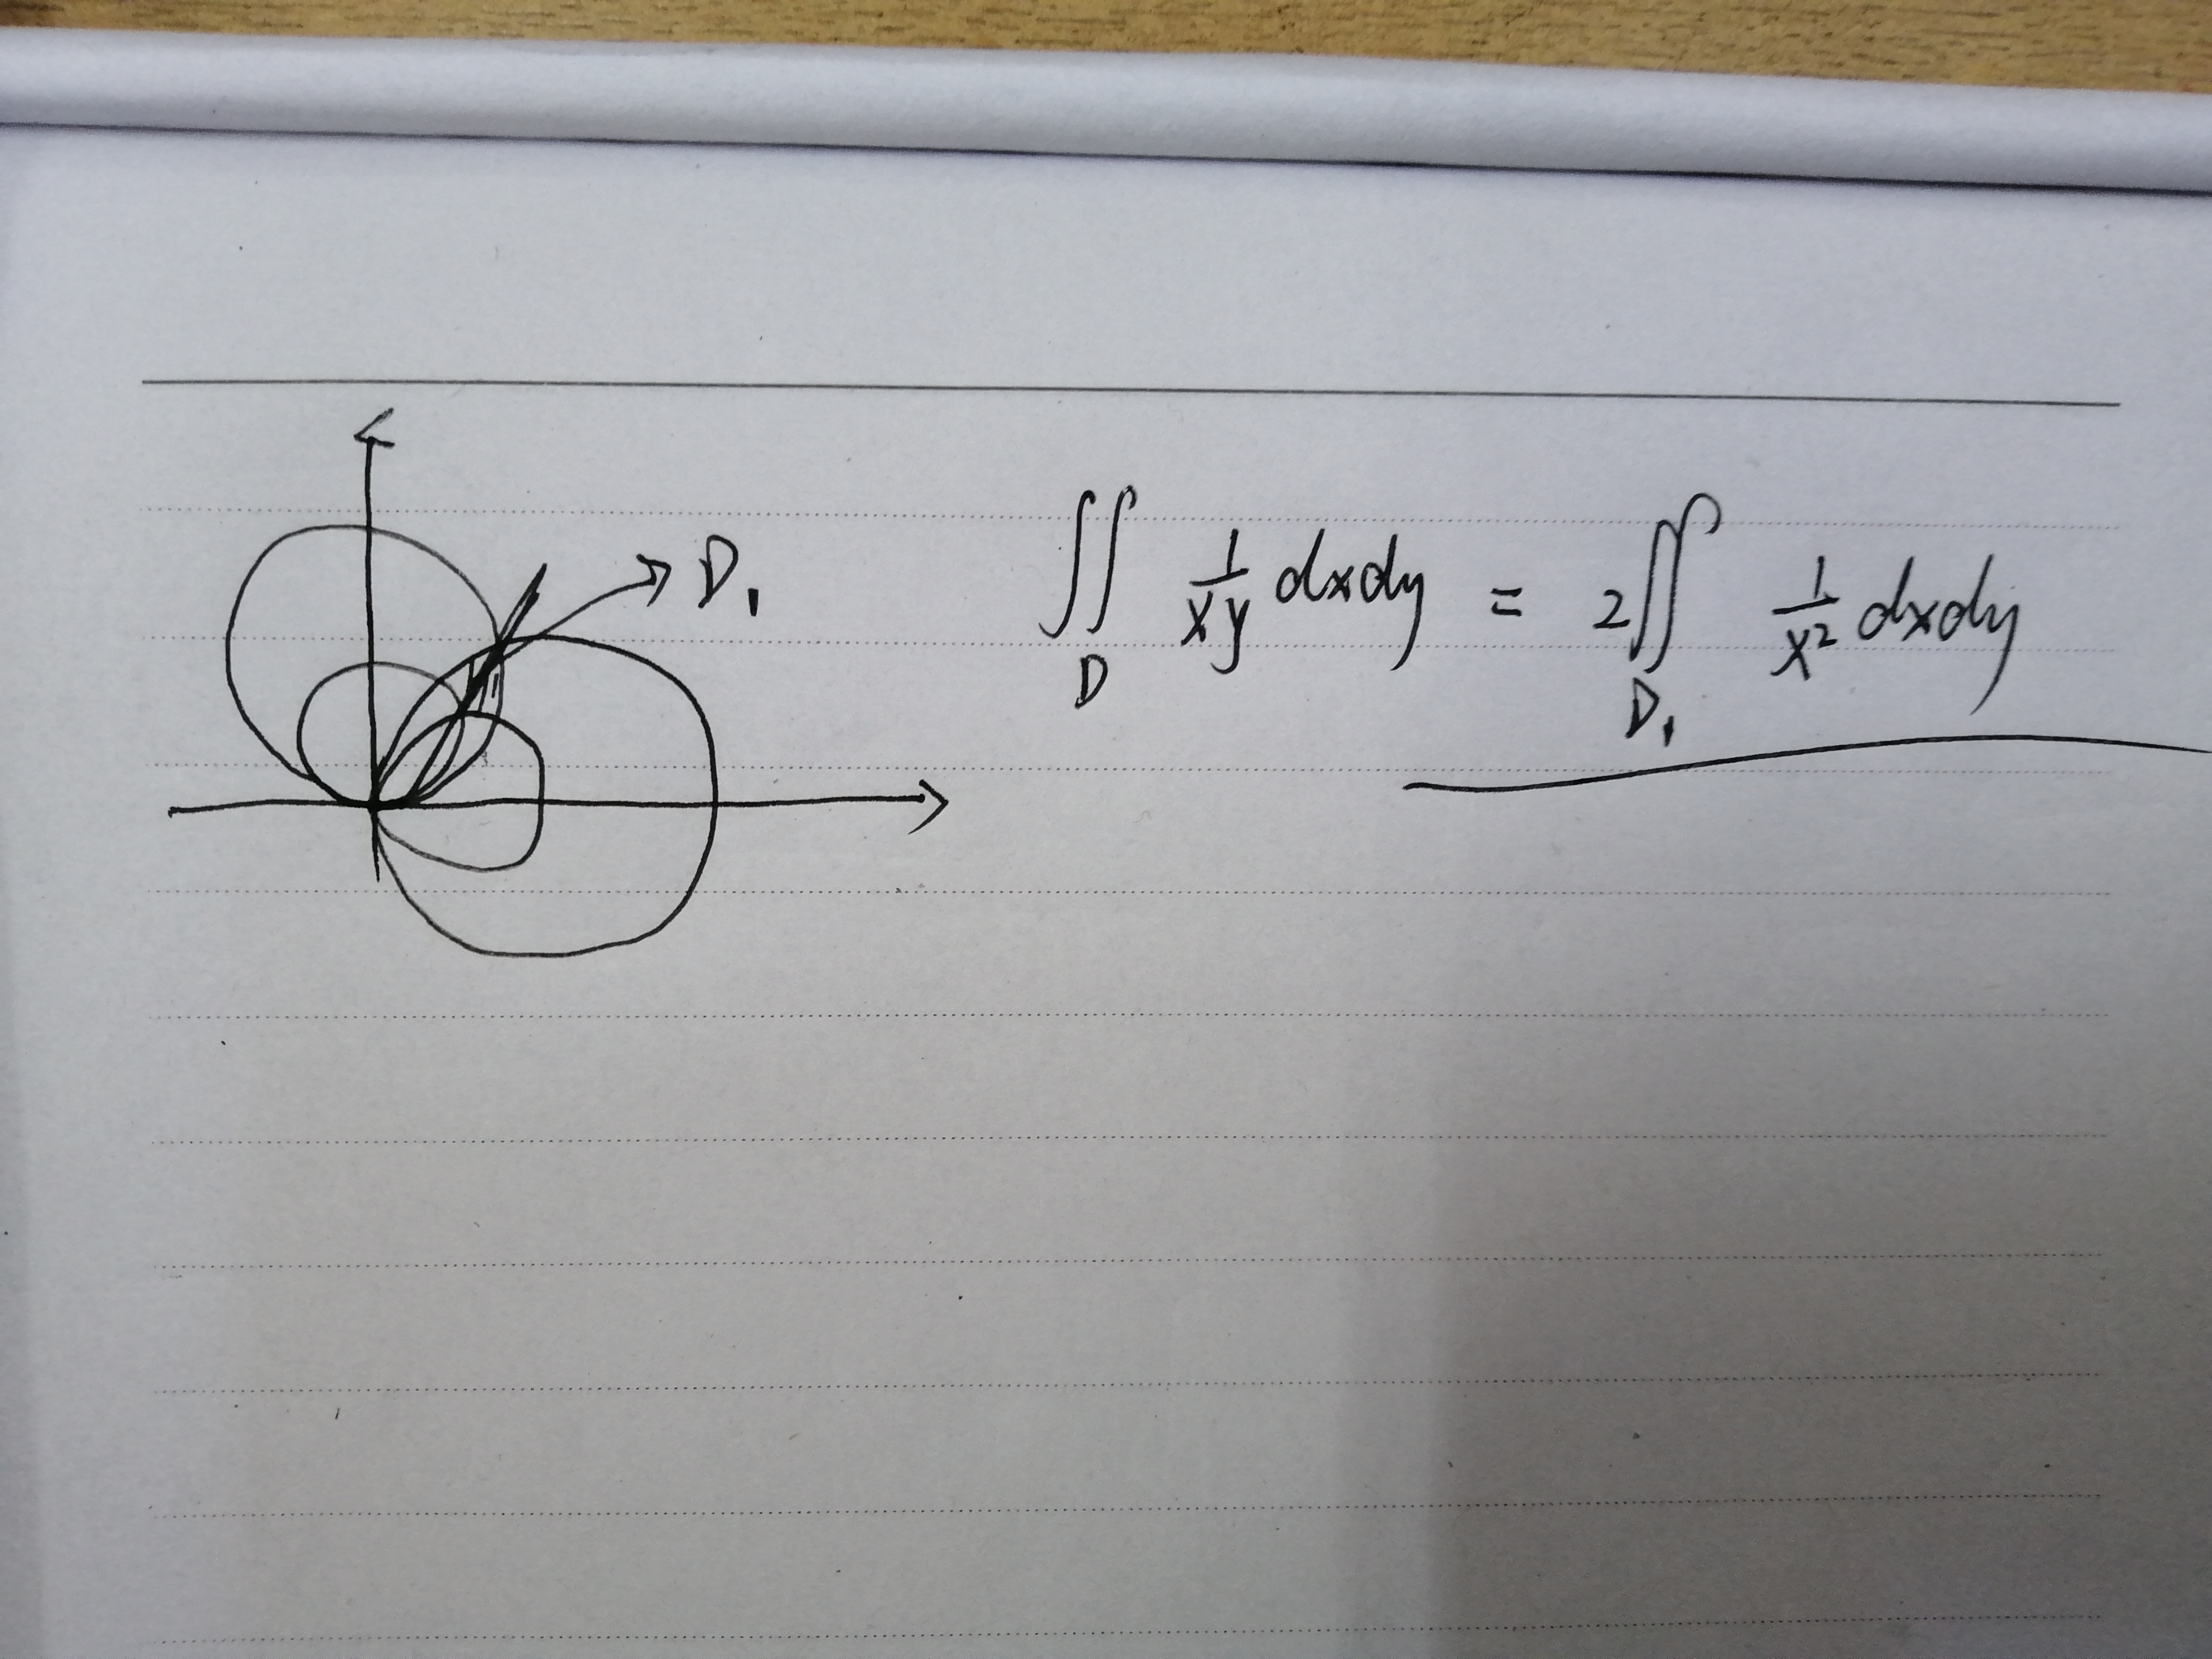 D₁
∬_D 1/(xy) dxdy = 2∬_D₁ 1/x² dxdy